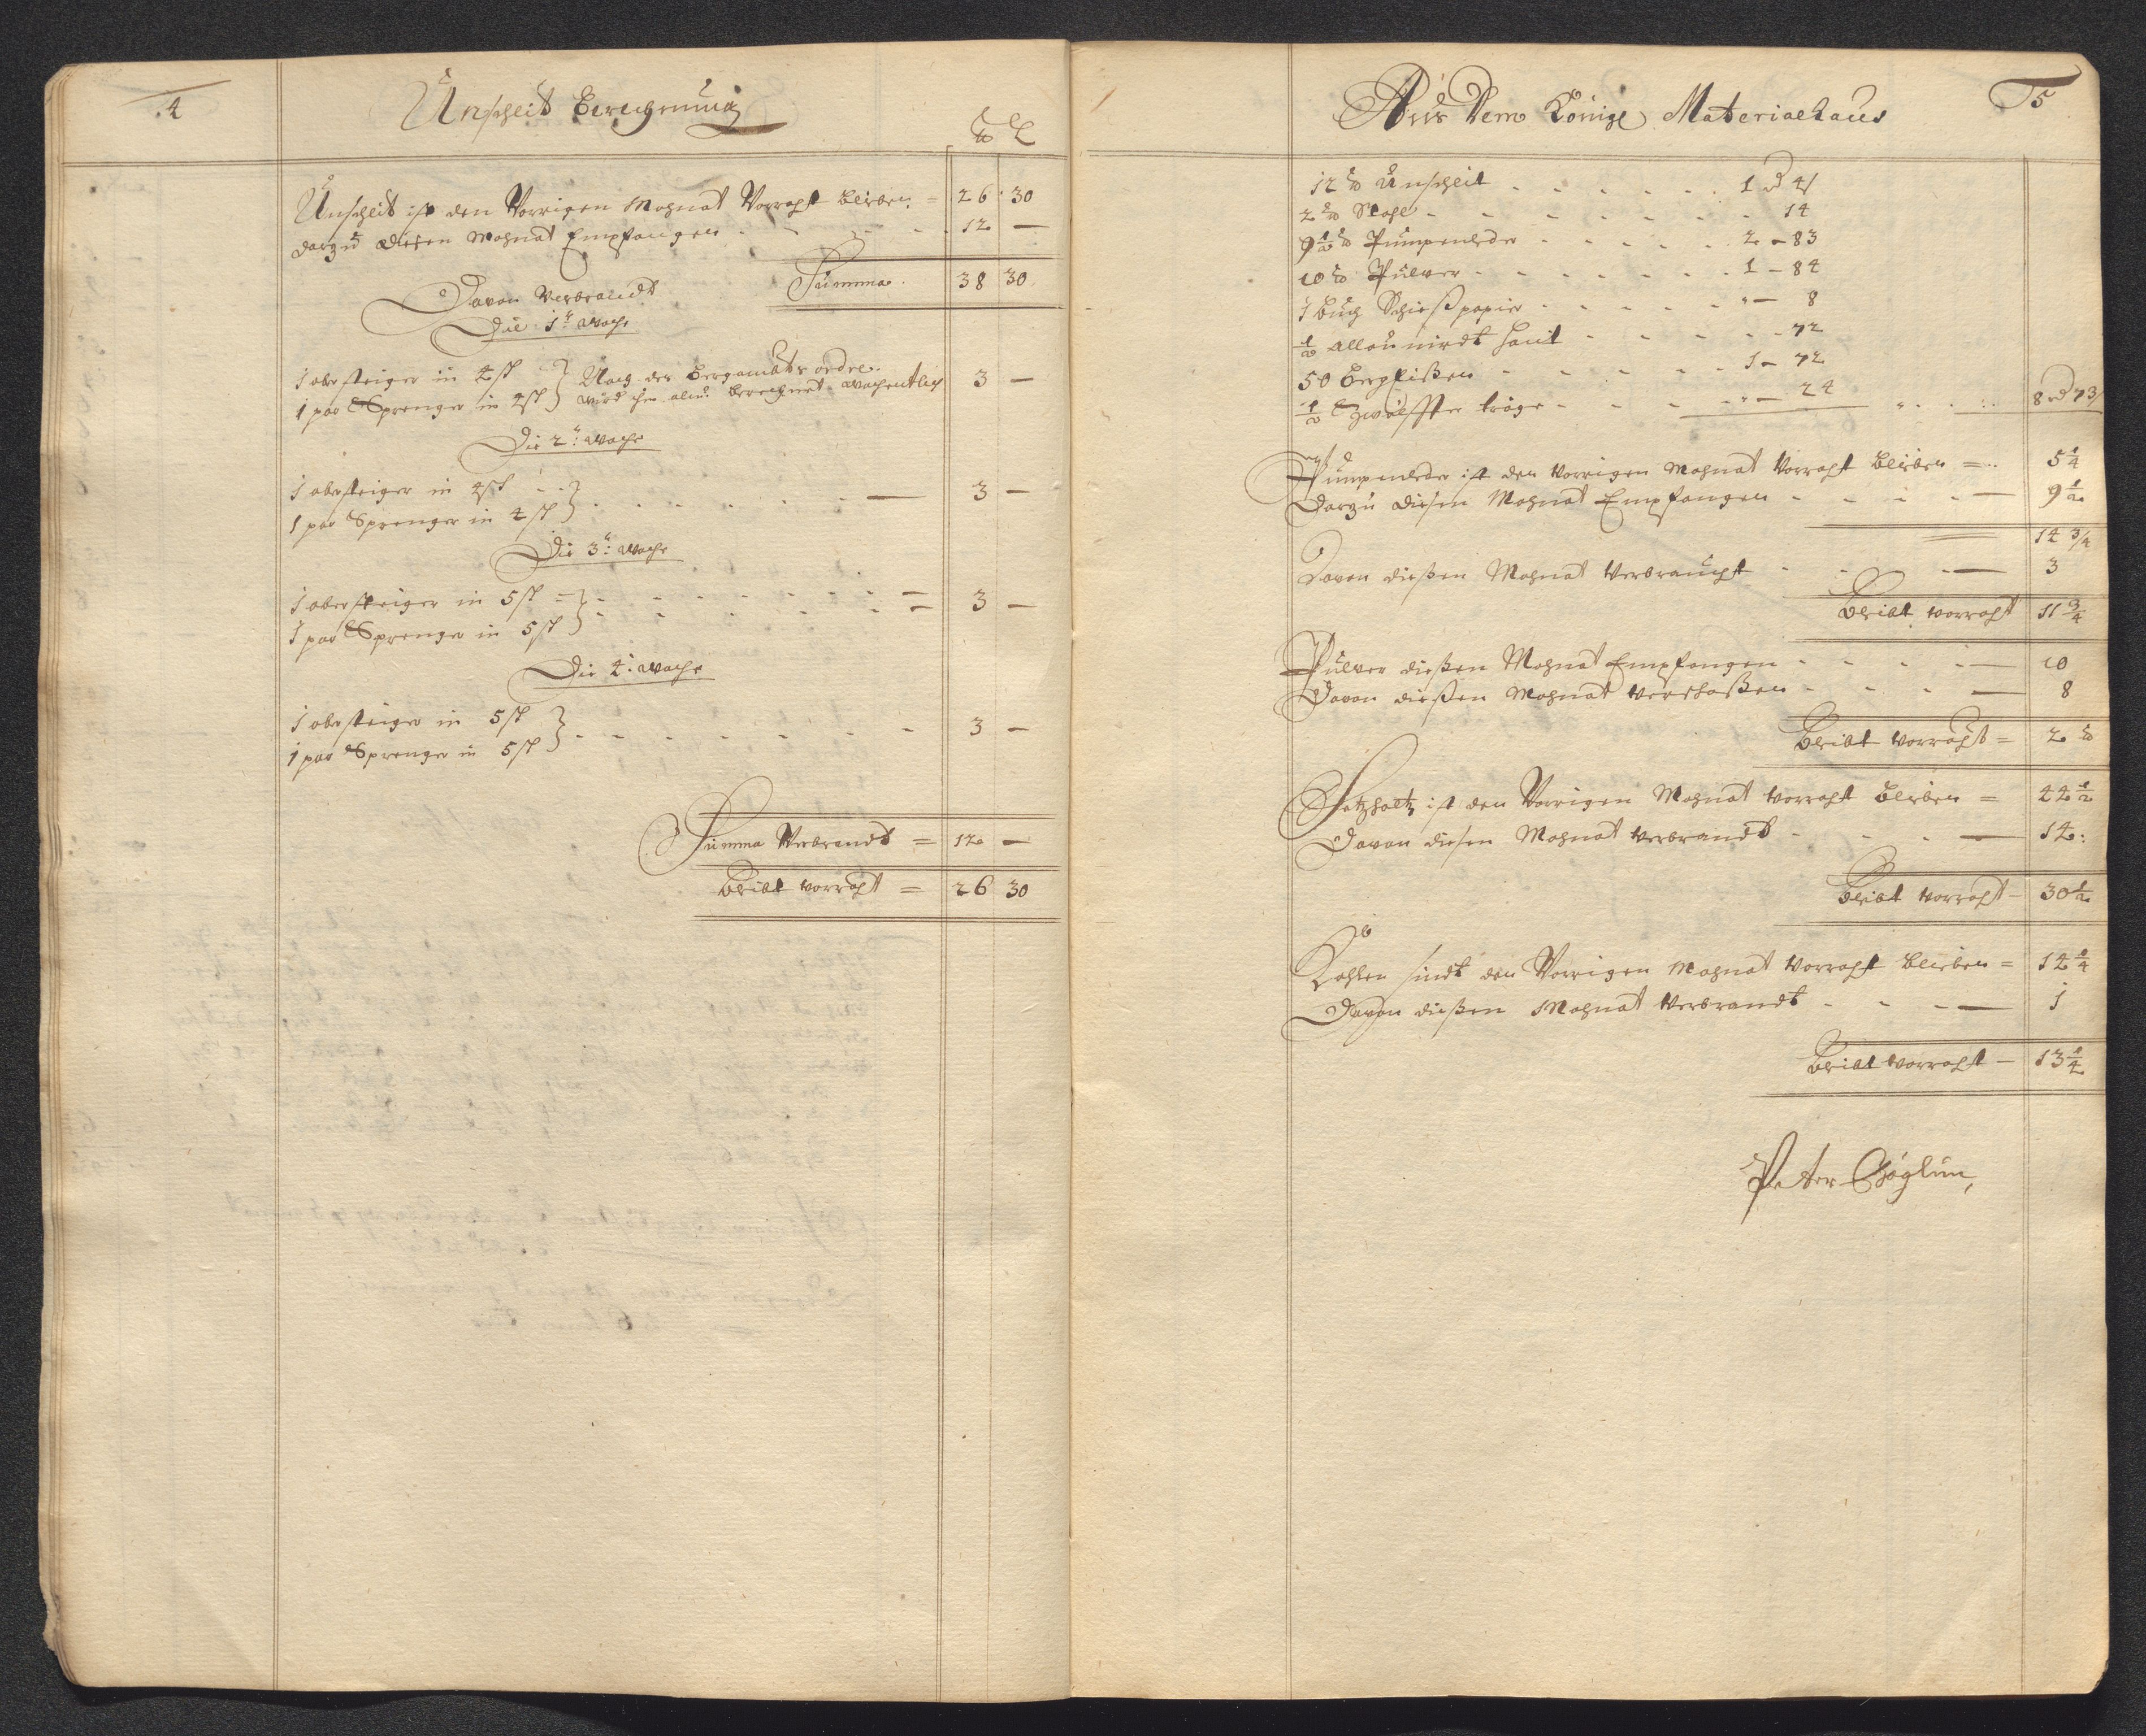 4
Unschlit Berechnung
℔ L
Unschlit ist den Vorrigen Mohnat Vorraht bleiben = 26 30
darzu diesen Mohnat Empfangen - - - - 12 —
Summa . 38 30
Davon Verbrandt
Die 1te Woche
1 obersteiger in 4 sch
1 par Sprenger in 4 sch } Nach des Bergambts ordre.
wird ihn berechnet wochentlich 3 —
Die 2te Woche
1 obersteiger in 4 sch
1 par Sprenger in 4 sch } - - - - — 3 —
Die 3te Woche
1 obersteiger in 5 sch =
1 par Sprenger in 5 sch } - - - - = 3 —
Die 4te Woche
1 obersteiger in 5 sch
1 par Sprenger in 5 sch } - - - - 3 —
Summa Verbrandt = 12 —
bleibt vorraht = 26 30
5
Aus Dem Königl Materialhaus
12 ℔ Unschlit - - - - 1 d 41
2 ℔ Stahl - - - - 14
9 1/2 ℔ Pumpenleder - - - - 2 - 83
10 ℔ Pulver - - - - 1 - 84
1 Buch Schießpapier - - - - " — 8
1/2 allaunirdt haut - - - - 72
50 Bergkißen - - - - 1 - 72
1/2 Zwölffter tröge - - - - " — 24 8 d 73/
Pumpenleder ist den Vorrigen Mohnat Vorraht bleiben = 5 1/4
Darzu diesen Mohnat Empfangen - - - — 9 1/2
14 3/4
Davon dießen Mohnat Verbraucht - - - — 3
bleibt vorraht 11 3/4
Pulver dießen Mohnat Empfangen - - - — 10
Davon dießen Mohnat verschoßen - - - — 8
bleibt vorraht = 2 ℔
Setzholtz ist den Vorrigen Mohnat vorraht bleiben = 44 1/2
Davon diesen Mohnat verbrandt - - - — 14:
bleibt vorraht - 30 1/2
Kohlen sindt den Vorrigen Mohnat Vorraht bleiben = 14 1/4
Davon dießen Mohnat Verbrandt - - - — 1
bleibt vorraht — 13 1/4
Peter